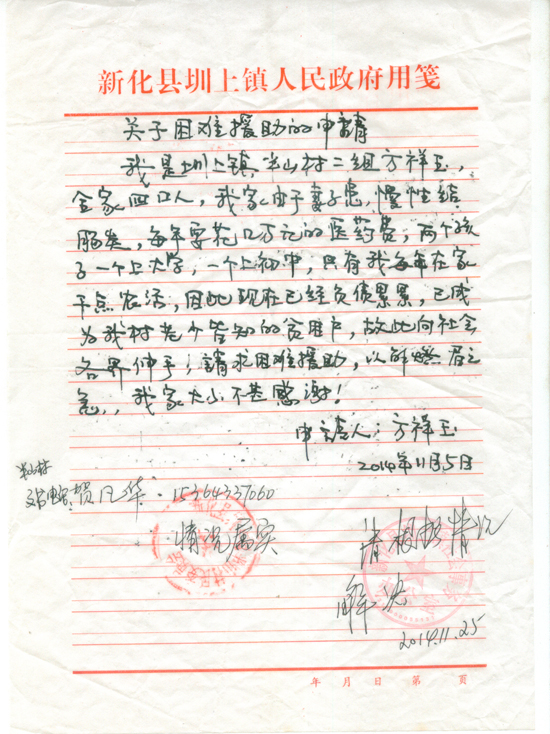 新化县圳上镇人民政府用笺
关于困难援助的申請
我是圳上镇半山村二组方祥玉，
全家四口人，我家由于妻子患慢性结
肠炎，每年要花几万元的医药费，两个孩
子一个上大学，一个上初中，只有我每年在家
干点农活，因此现在已经负债累累，已成
为我村老少皆知的贫困户，故此向社会
各界伸手，請求困难援助，以解燃眉之
急，我家大小不甚感谢！
申請人：方祥玉
2014年11月5日
半山村
贺凡华．15364337060
情况属实
请根据情况
解决
2014.11.25
年 月 日 第 页